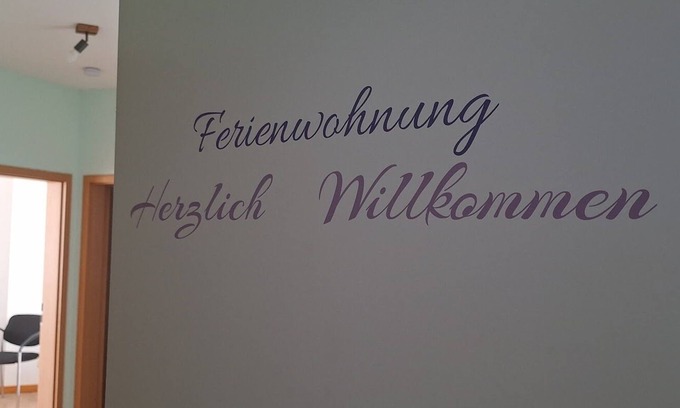 Ferienwohnung
Herzlich Willkommen